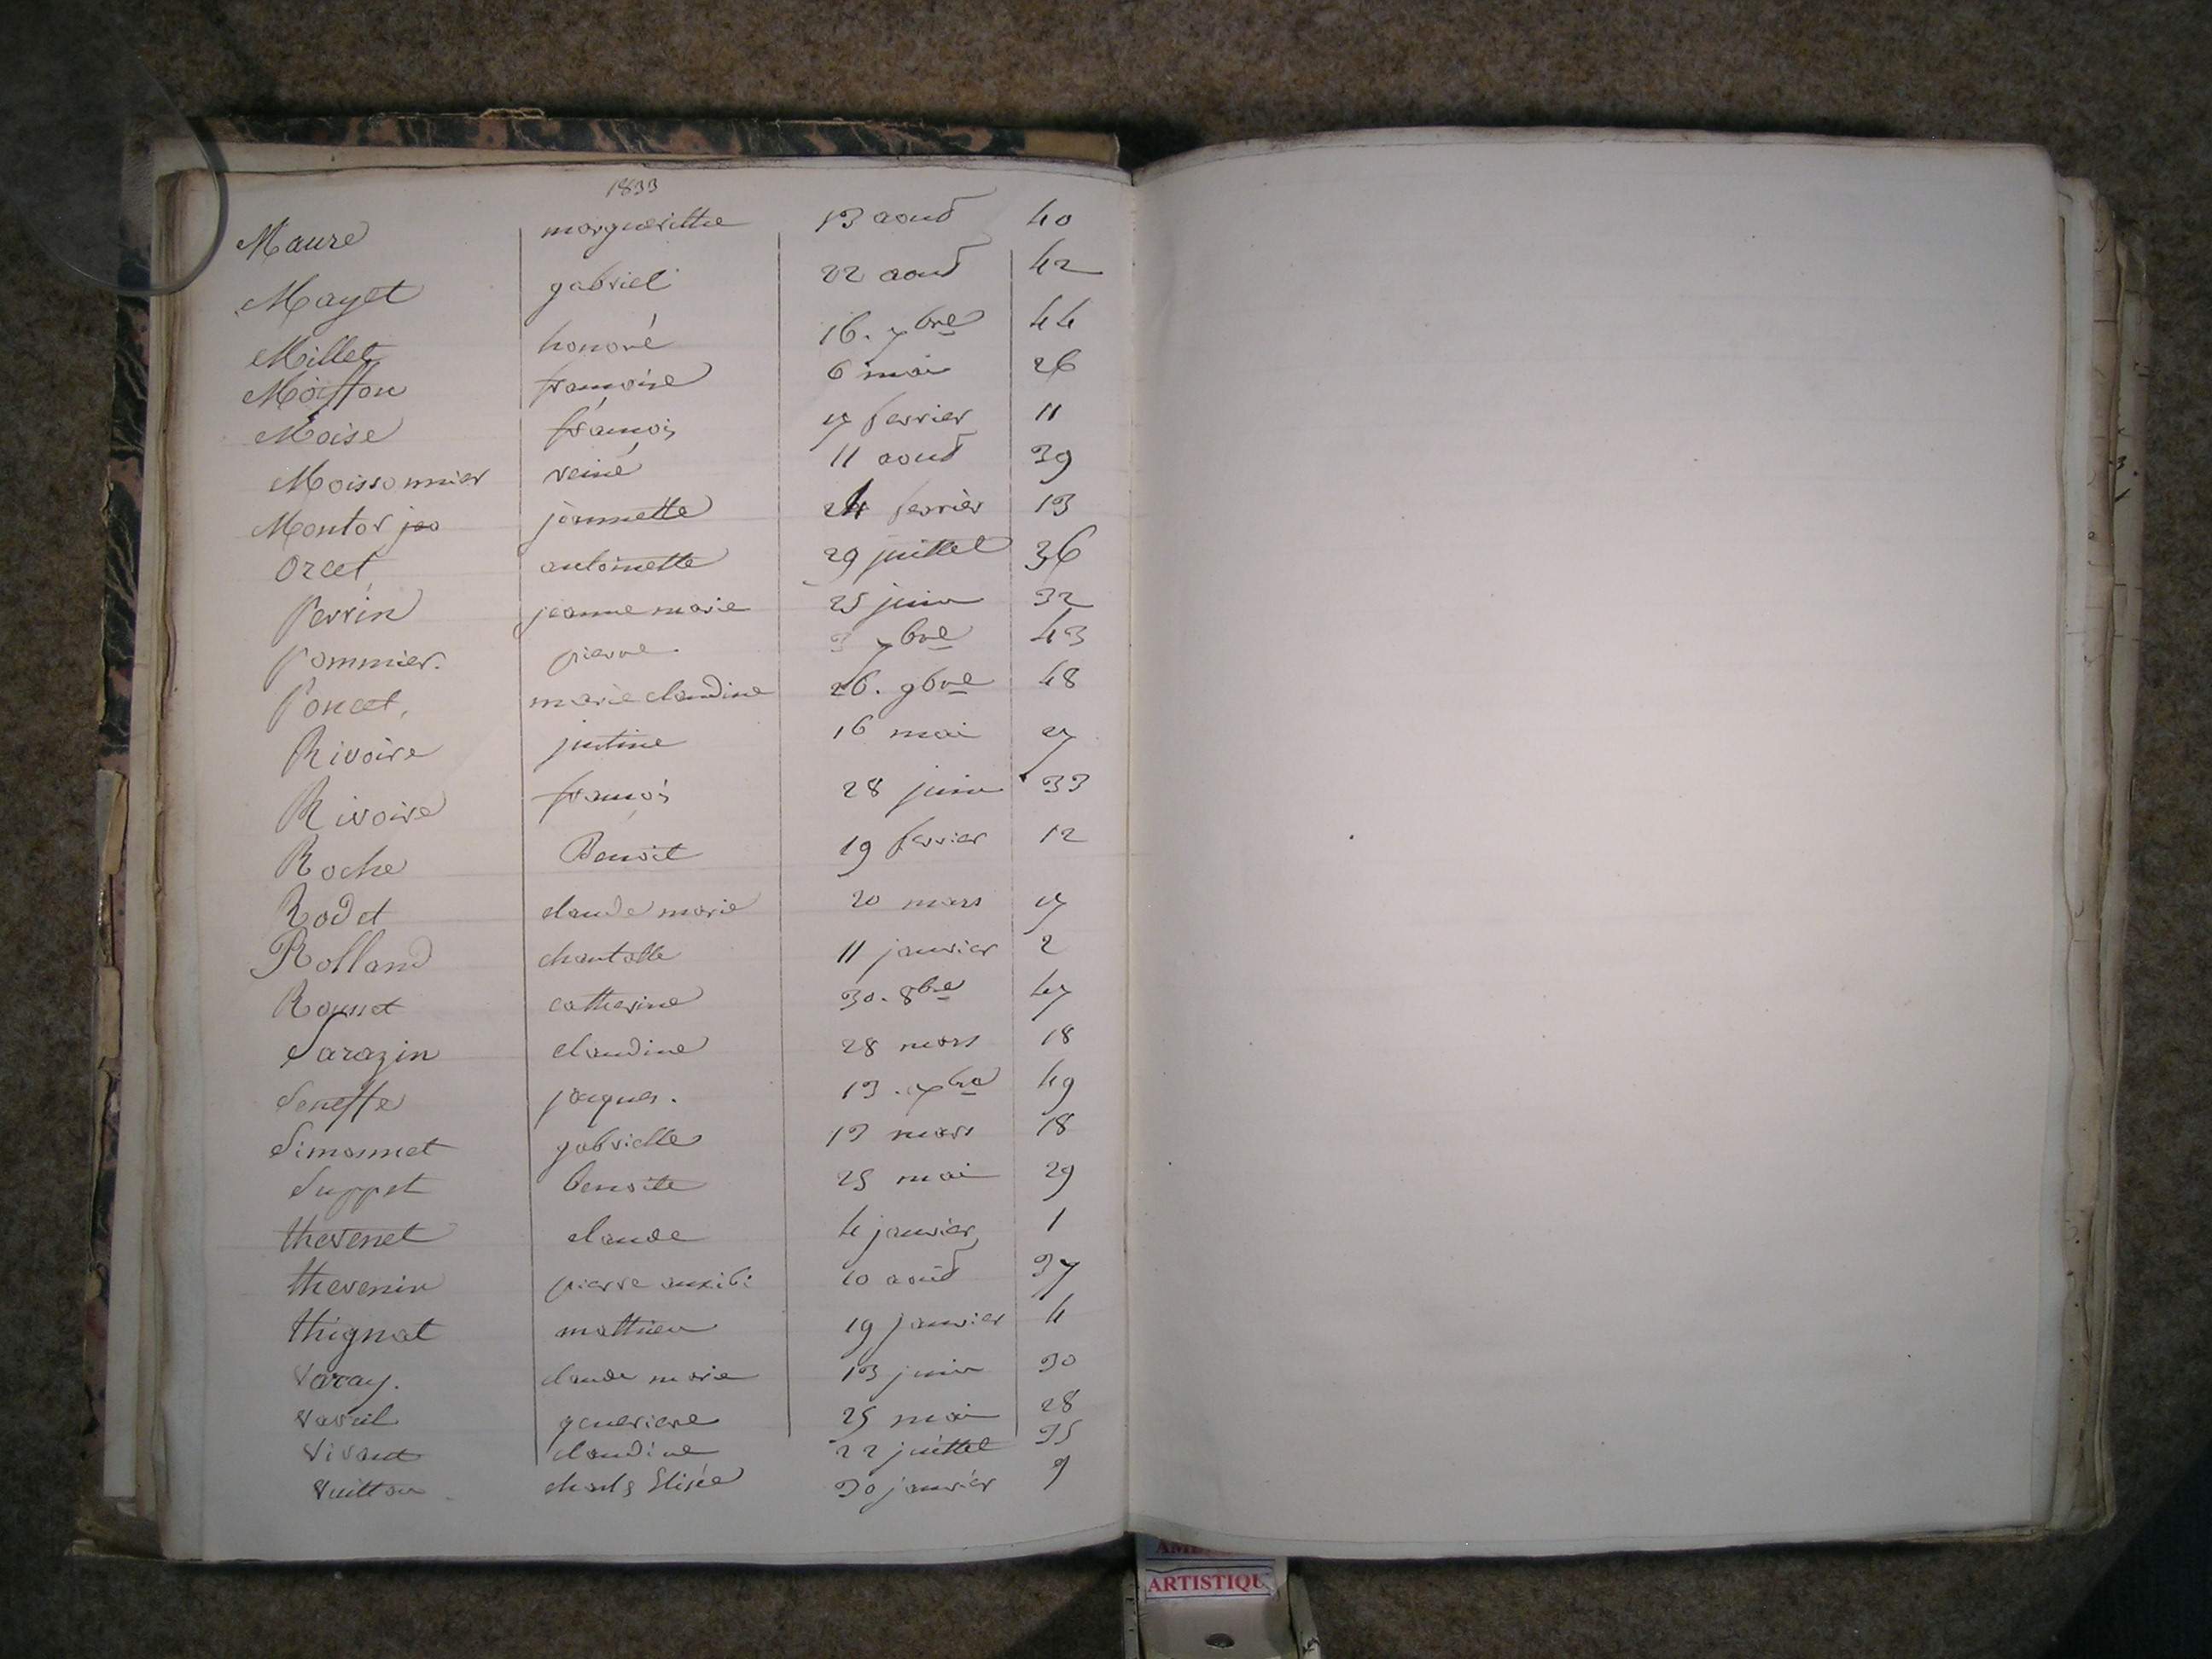 1833
Maure margueritte 13 aout 40
Mayet gabriel 22 aout 42
Millet honoré 16. 7bre 44
Moisson françoise 6 mai 26
Moise françois 17 fevrier 11
Moissonnier reine 11 aout 39
Montor jea jeannette 24 fevrier 13
Orcet antoinette 29 juillet 36
Perrin jeanne marie 25 juin 32
Pommier. pierre 3 7bre 43
Poncet, marie claudine 26. 9bre 48
Rivoire justine 16 mai 27
Rivoire françois 28 juin 33
Roche Benoit 19 fevrier 12
Rodet claude marie 20 mars 17
Rolland chantalle 11 janvier 2
catherine 30. 8bre 47
Sarazin claudine 28 mars 18
jacques. 13. 49
Simonnet gabrielle 13 mars 18
Suppet benoite 25 mai 29
thevenet claude 4 janvier 1
thevenin pierre 10 août 37
thignat mathieu 19 janvier 4
Varay. claude marie 13 juin 30
genevieve 25 mai 28
Vivant claudine 22 juillet 35
Vuitton charles Elisée 30 janvier 9
ARTISTIQU